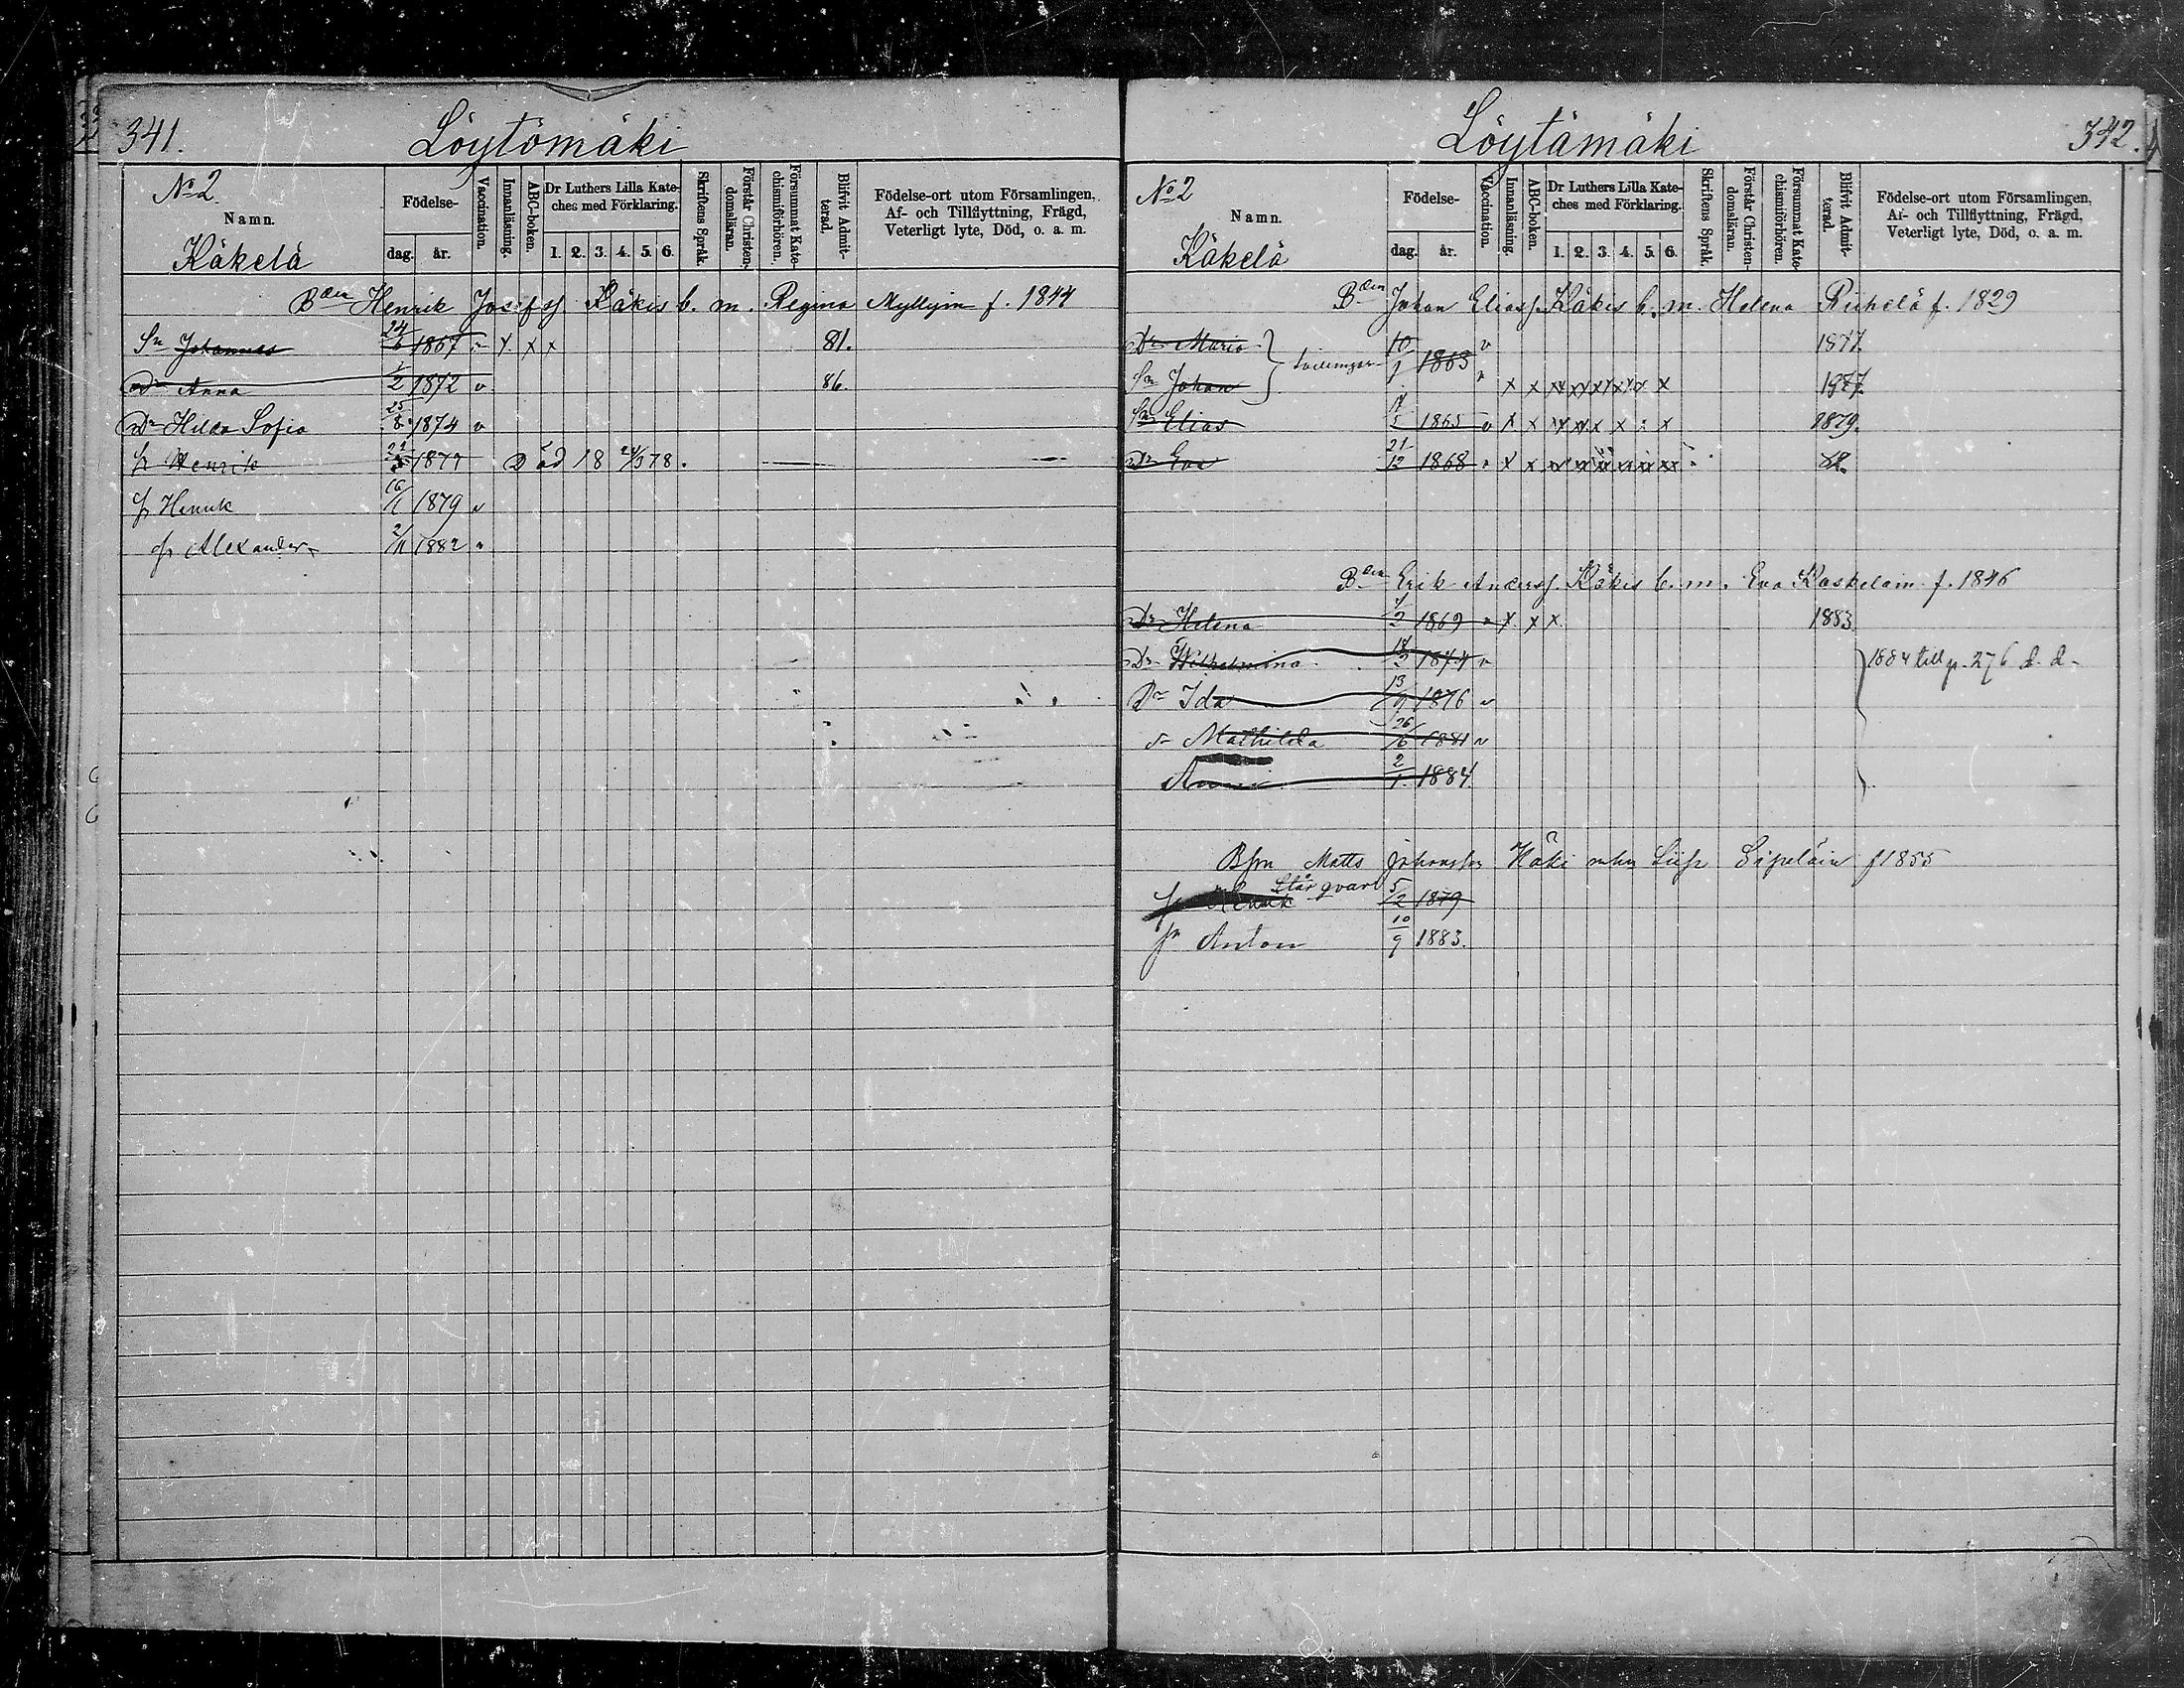 341.
Löytömäki
No 2.
Namn.
Käkelä
Födelse-
dag. år.
Vaccination.
Innanläsning.
ABC-boken.
Dr Luthers Lilla Kate-
ches med Förklaring.
1. 2. 3. 4. 5. 6.
Skriftens Språk.
Förstår Christen-
domsläran.
Försummat Kate-
chismiförhören.
Blifvit Admit-
terad.
Födelse-ort utom Församlingen,
Af- och Tillflyttning, Frägd,
Veterligt lyte, Död, o. a. m.
Bden Henrik Josefss. Käkis b. m. Regina Myllyin f. 1844
Sn Johannes 24/6 1867 x x x 81.
Dr Anna 1/2 1872 v 86.
Dr Hilda Sofia 25/8 1874 v
Henrik 1877 Död 18 24/3 78.
Henrik 1879 v
Alexander 2/11 1882
Löytämäki
342.
No 2
Namn.
Käkelä
Födelse-
dag. år.
Vaccination.
Innanläsning.
ABC-boken.
Dr Luthers Lilla Kate-
ches med Förklaring.
1. 2. 3. 4. 5. 6.
Skriftens Språk.
Förstår Christen-
domsläran.
Försummat Kate-
chismiförhören.
Blifvit Admit-
terad.
Födelse-ort utom Församlingen,
Af- och Tillflyttning, Frägd,
Veterligt lyte, Död, o. a. m.
Bden Johan Eliass. Käkis b. m. Helena f. 1829
Dr Maria tvillingar 10/1 1863 v 1877.
Sn Johan x x 1877.
Sn Elias 1865 v x x 1879.
Dr Eva 21/12 1868 x x 82.
Bden Erik Anderss. Käkis b. m. Eva Koskelain f. 1846
Dr Helena 1869 x x x 1883.
Dr Wilhelmina 1874 v 1884 till p. 276 d. d.
Dr Ida 13/9 1876 v
Mathilda 26/6 1881 v
2/1 1884.
Matts Johansson Käki Sipeläin f 1855
Henrik Står qvar 5/2 1879
Anton 10/9 1883.